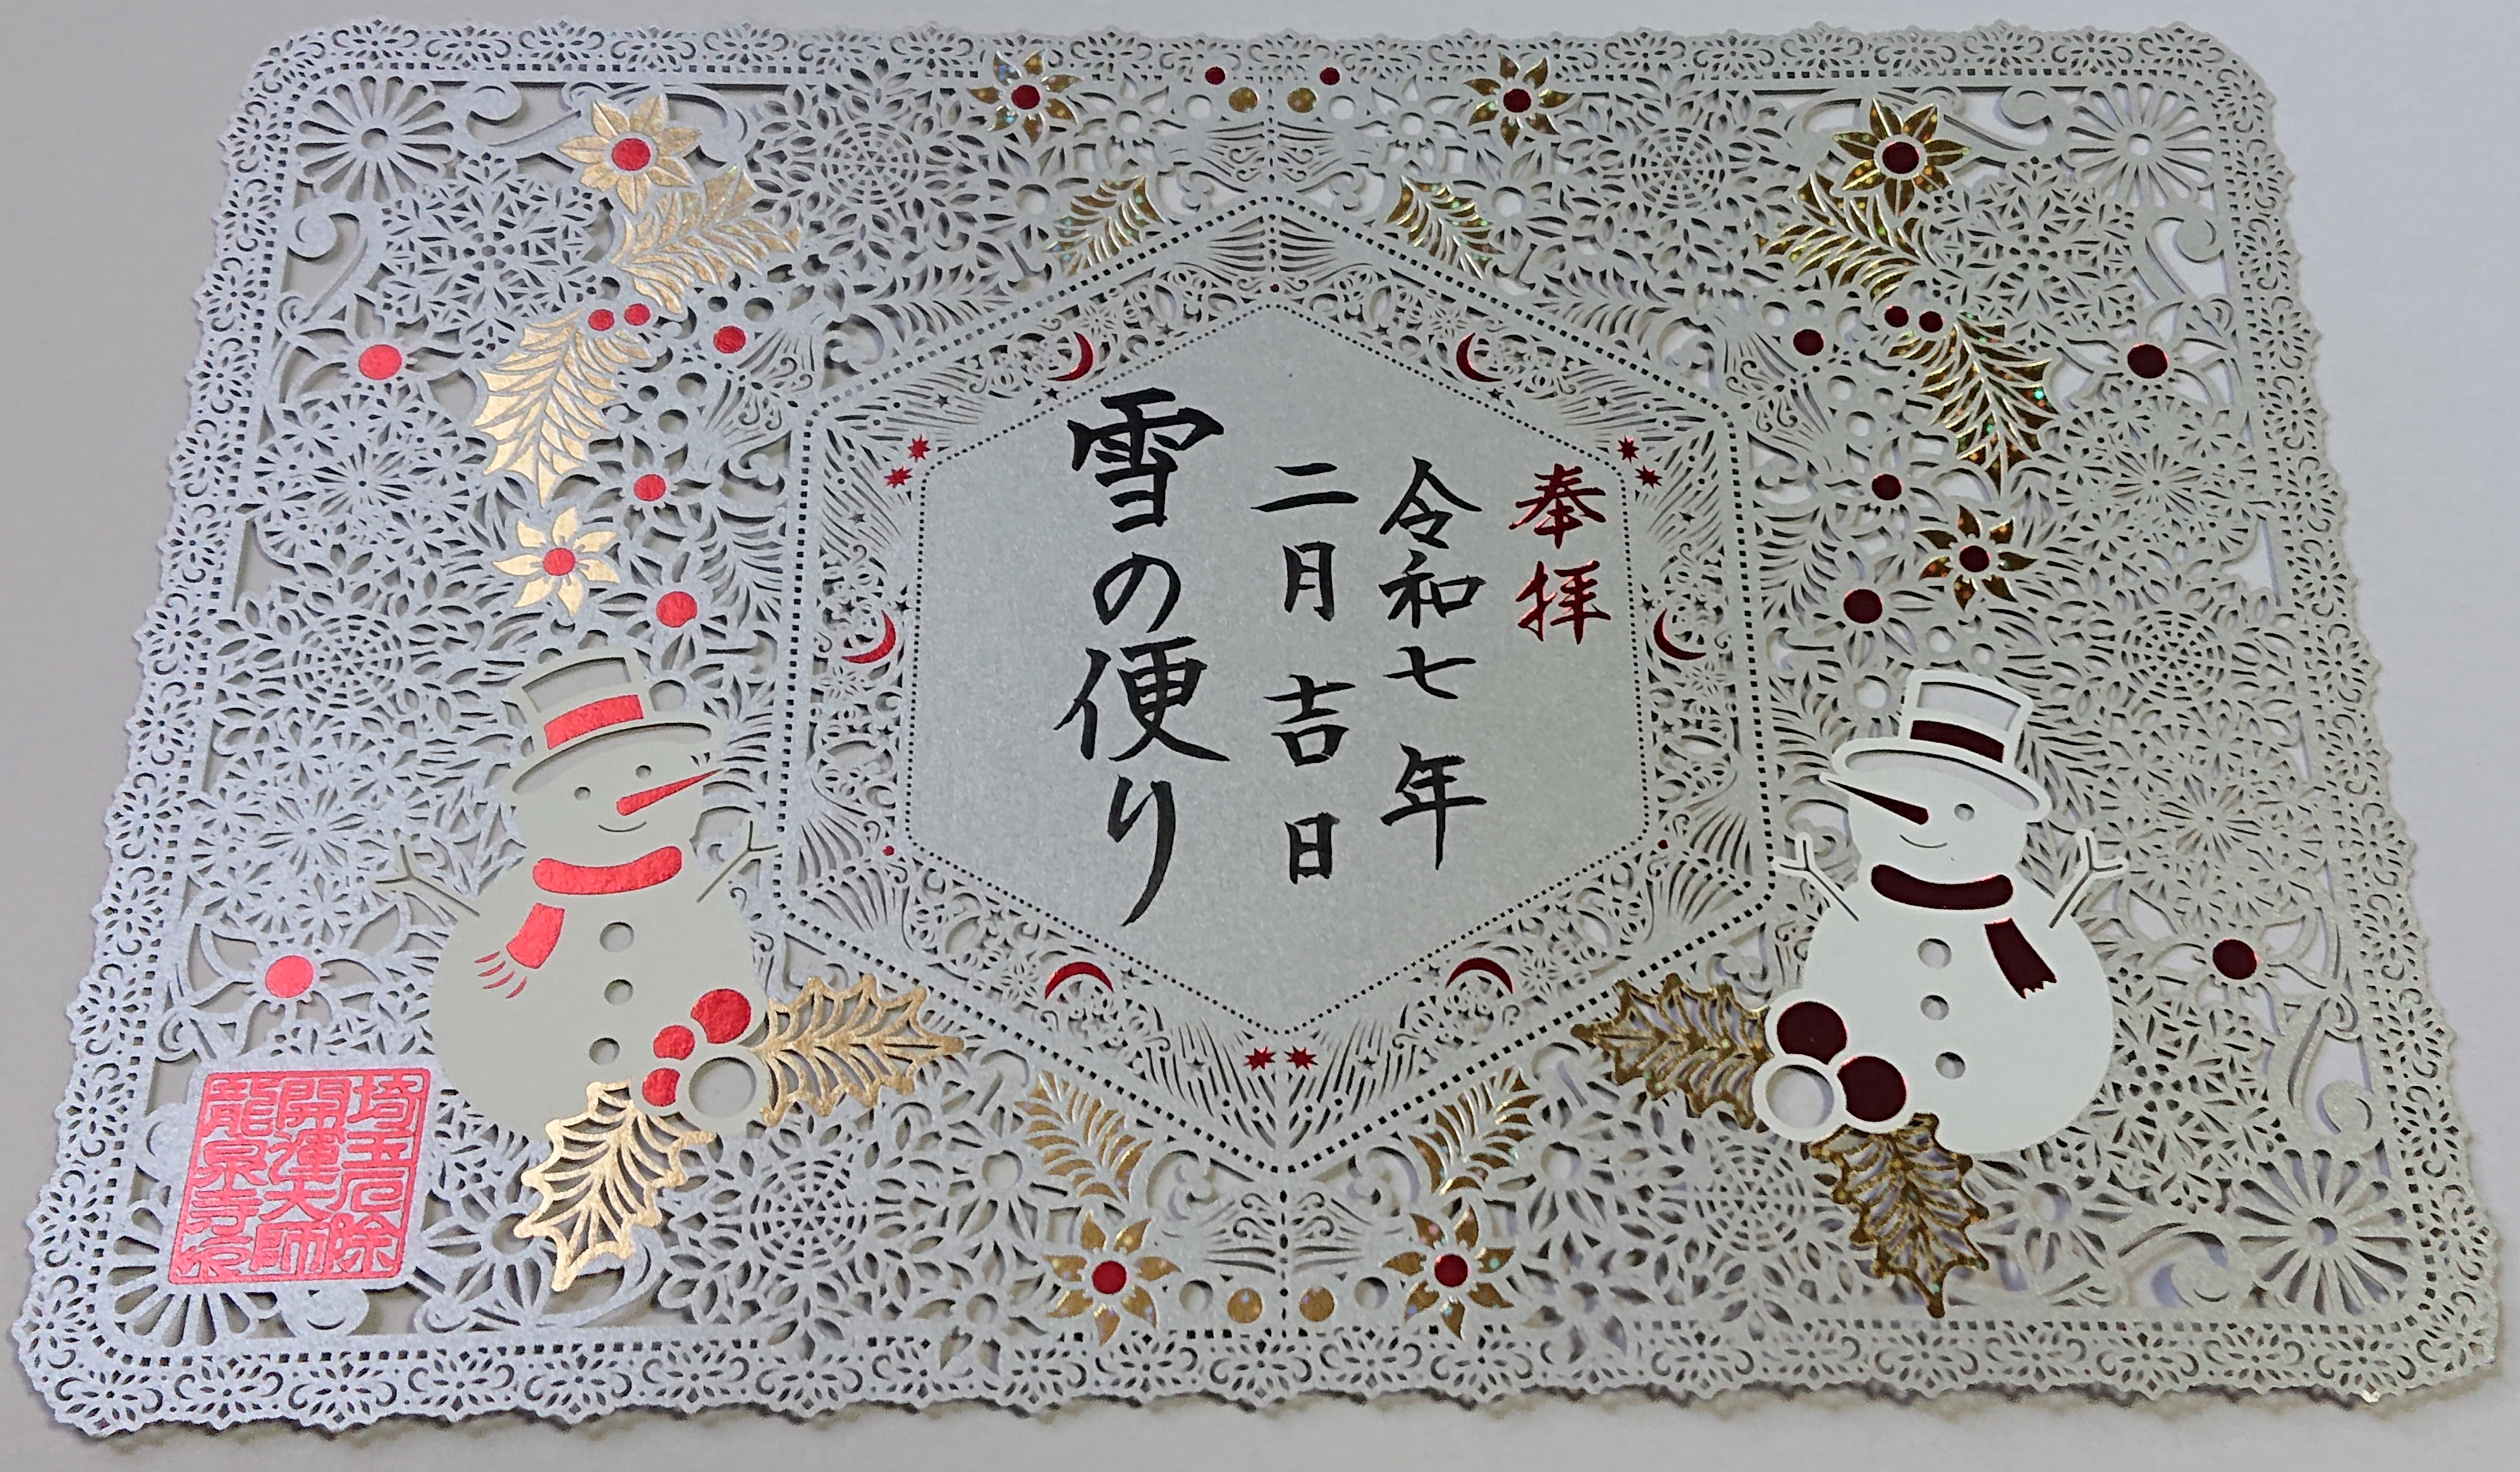 奉拝
令和七年
二月吉日
雪の便り
埼玉厄除
開運大師
龍泉寺印